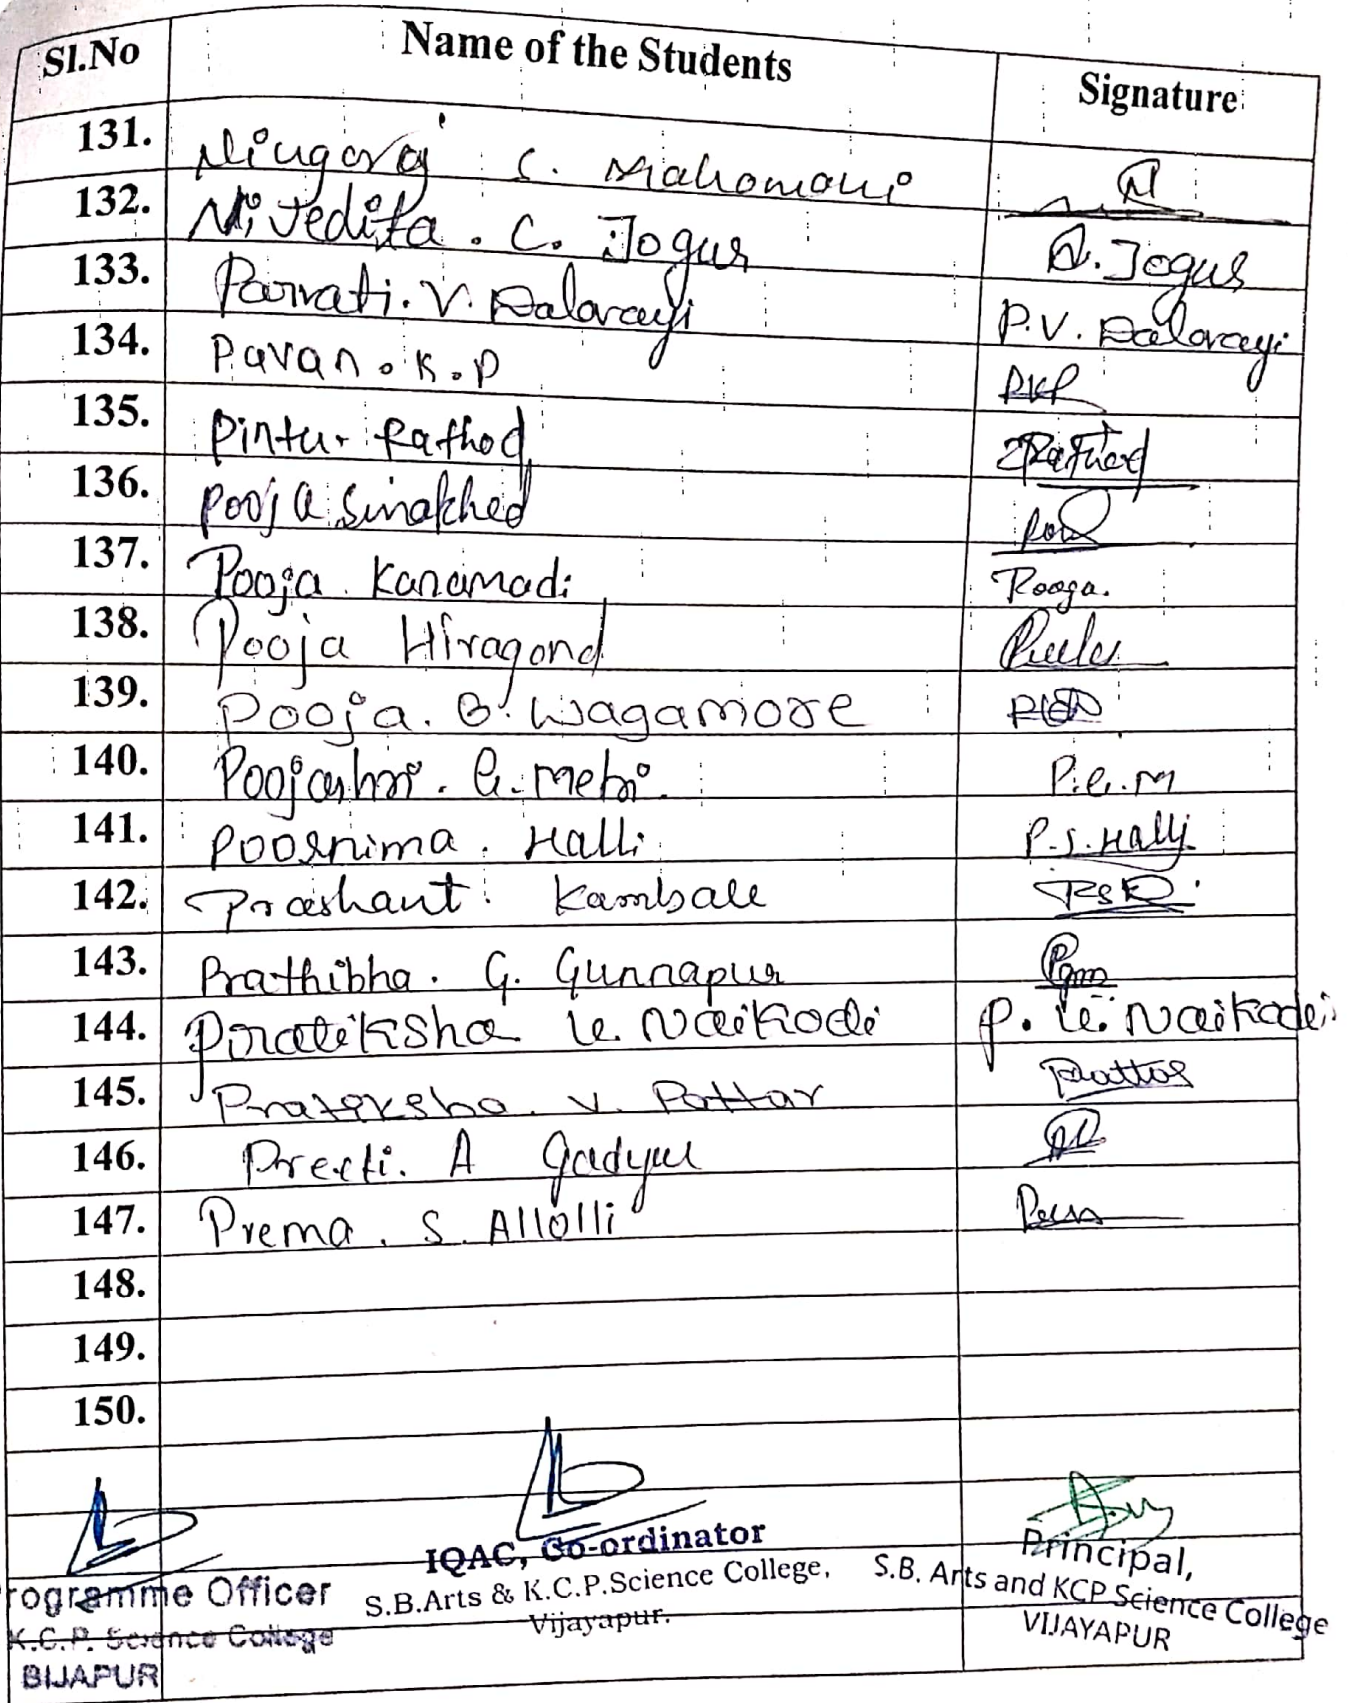 Sl.No Name of the Students Signature
131. Ningaraj S. Mahamani
132. Nivedita . C. Jogur N. Jogur
133. Parvati . V. Dalavayi P.V. Dalavayi
134. Pavan . K . P PKP
135. Pintu . Rathod Rathod
136. Pooja Sinakhed
137. Pooja Kanamadi Pooja.
138. Pooja Hiragond
139. Pooja . B. Wagamore
140. Poojashri . G. Metri P.G.M
141. Poornima . Halli P.S. Halli
142. Prashant Kambale PSK
143. Prathibha . G. Gunnapur
144. Prateeksha U. Naikodi P. U. Naikodi
145. Prateksha . V. Pattar Pattar
146. Preeti . A
147. Prema . S. Allolli
148.
149.
150.
rogramme Officer IQAC, Co-ordinator Principal,
K.C.P. Science College S.B.Arts & K.C.P.Science College, S.B. Arts and KCP Science College
BIJAPUR Vijayapur. VIJAYAPUR